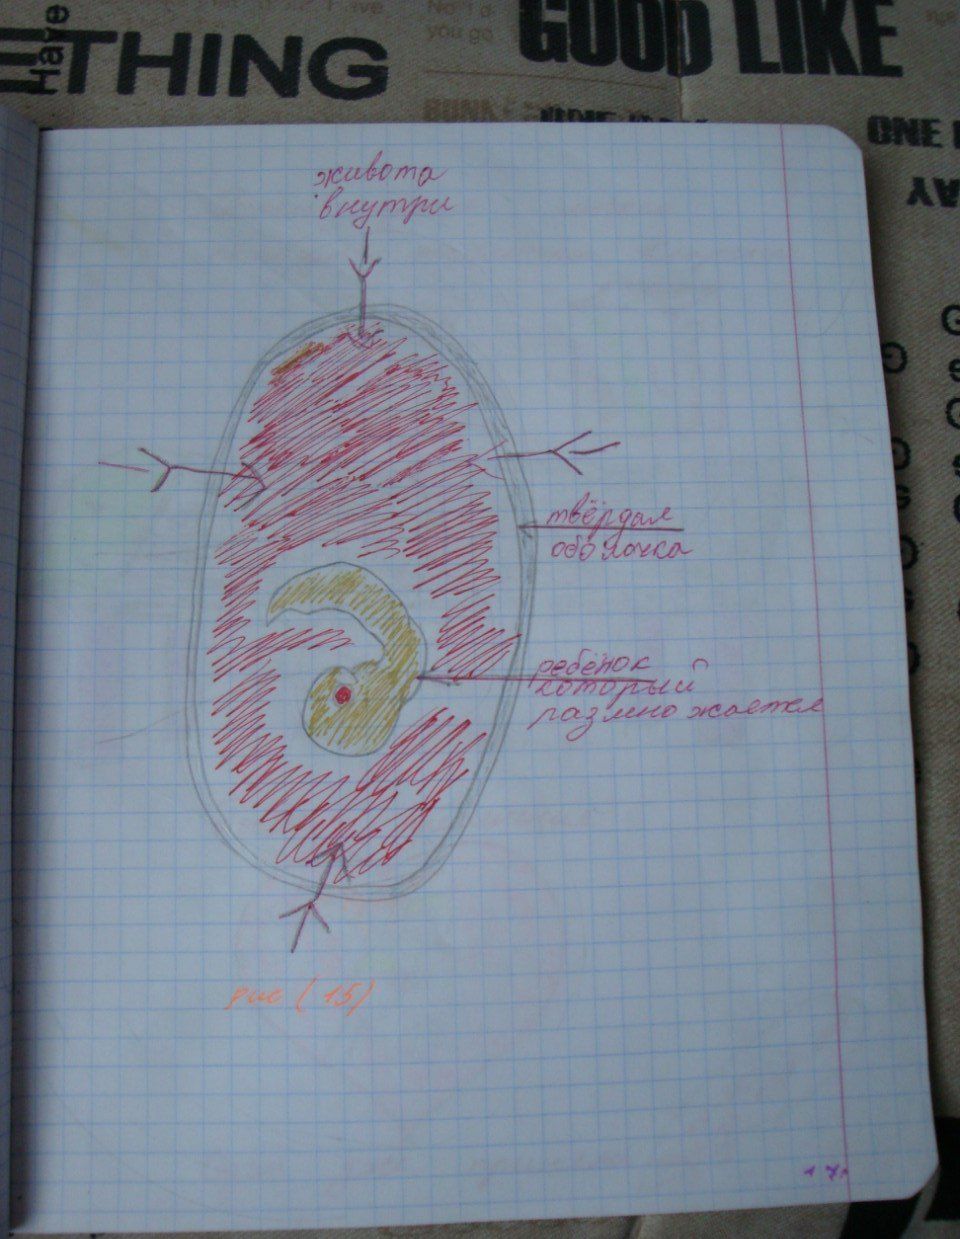 Have
ETHING
No
you go
GOOD LIKE
ONE
AY
живота
внутри
твёрдая
оболочка
ребёнок
который
размножается
рис (15)
17